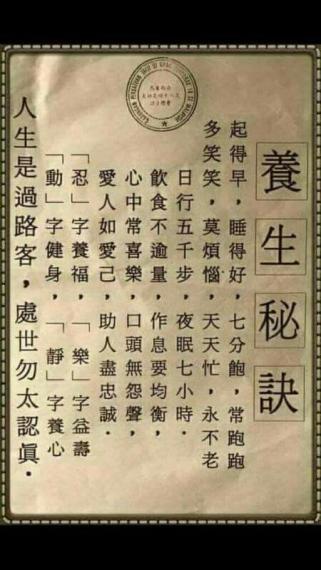 養生秘訣
起得早，睡得好，七分飽，常跑跑
多笑笑，莫煩惱，天天忙，永不老
日行五千步，夜眠七小時．
飲食不逾量，作息要均衡，
心中常喜樂，口頭無怨聲，
愛人如愛己，助人盡忠誠．
「忍」字養福，「樂」字益壽
「動」字健身，「靜」字養心
人生是過路客，處世勿太認眞．